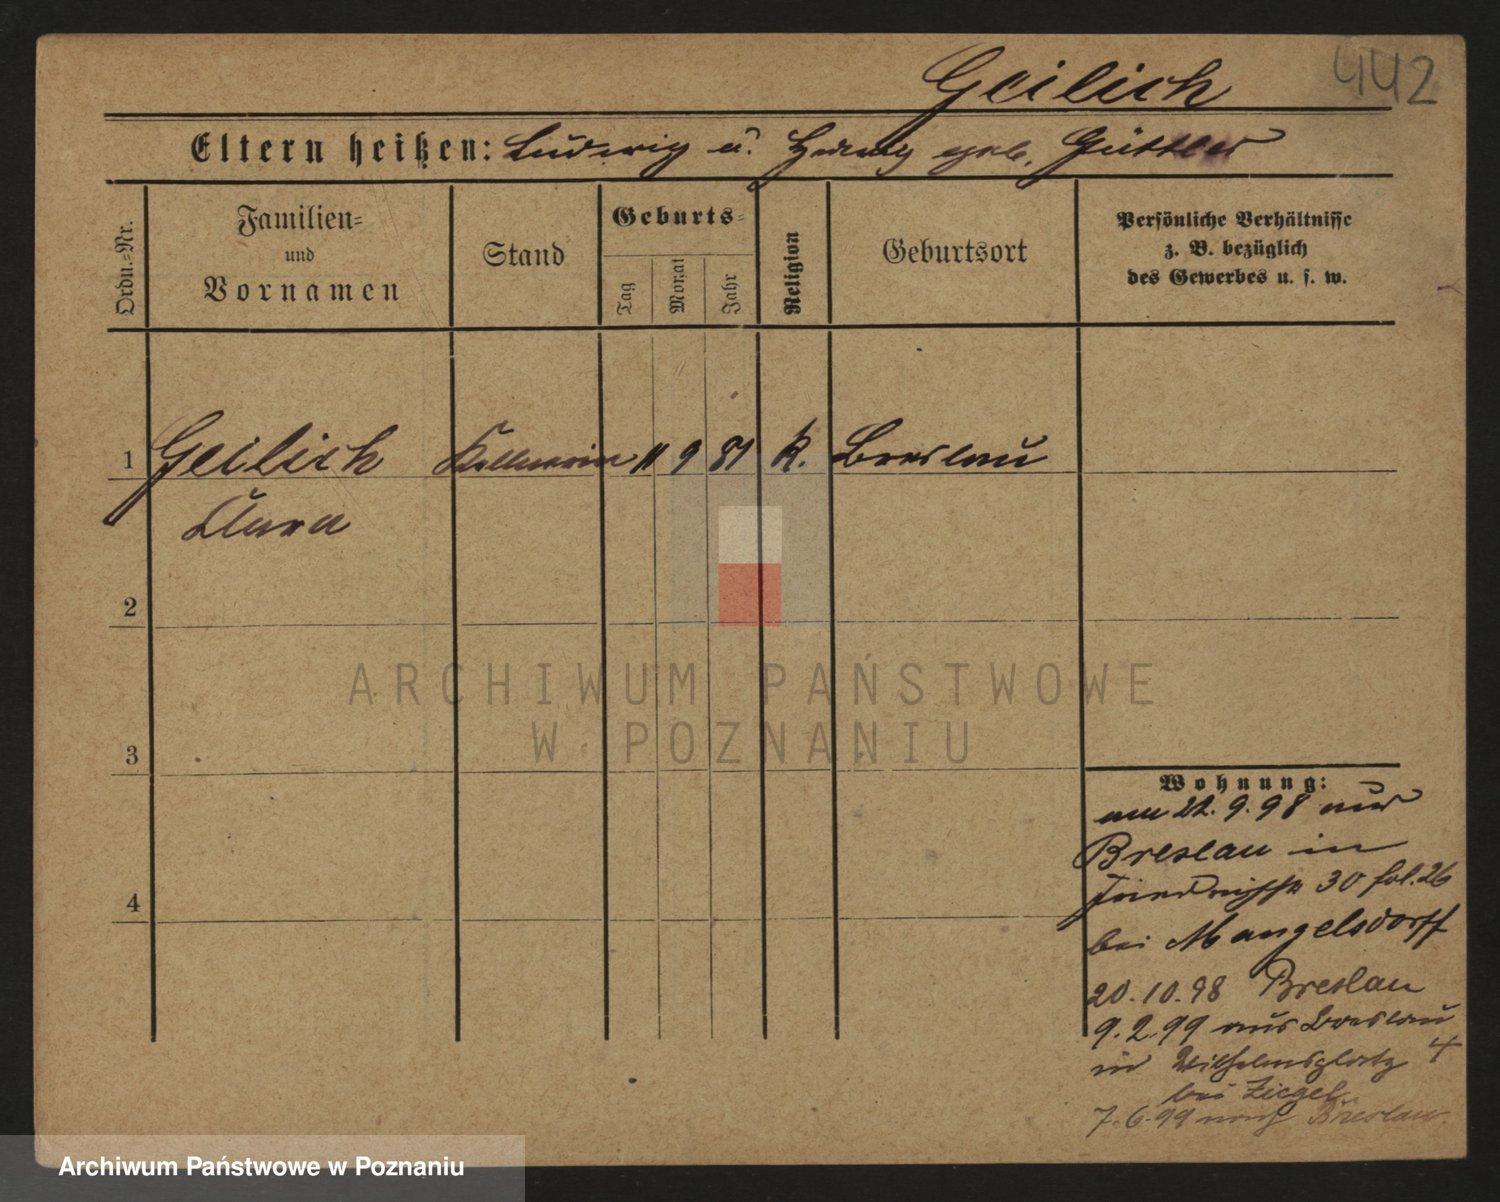 442
Geilich
Eltern heißen: Ludwig u. Hedwig geb. Güttler
Ordn.-Nr.
Familien-
und
Vornamen
Stand
Geburts-
Tag
Monat
Jahr
Religion
Geburtsort
Persönliche Verhältnisse
z. B. bezüglich
des Gewerbes u. s. w.
1 Geilich Kellnerin 11 9 81 k. Breslau
Clara
2
3
4
Wohnung:
am 22. 9. 98 aus
Breslau in
Friedrichstr 30 fol. 26
bei Mangelsdorff
20. 10. 98 Breslau
9. 2. 99 aus Breslau
in Wilhelmsplatz 4
bei Ziegel
7. 6. 99 nach Breslau.
ARCHIWUM PAŃSTWOWE
W POZNANIU
Archiwum Państwowe w Poznaniu